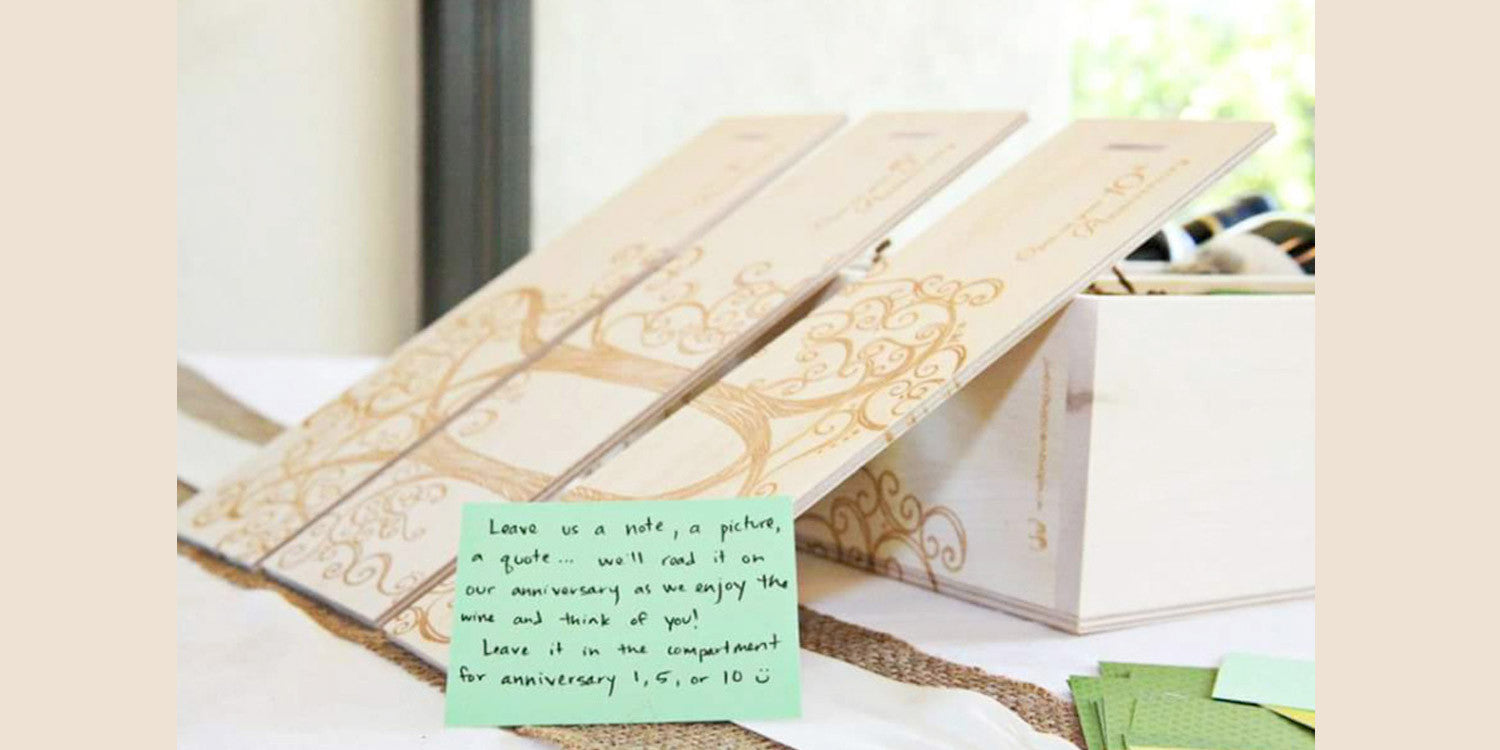 10
Leave us a note, a picture,
a quote... we'll read it on
our anniversary as we enjoy the
wine and think of you!
Leave it in the compartment
for anniversary 1, 5, or 10 ü